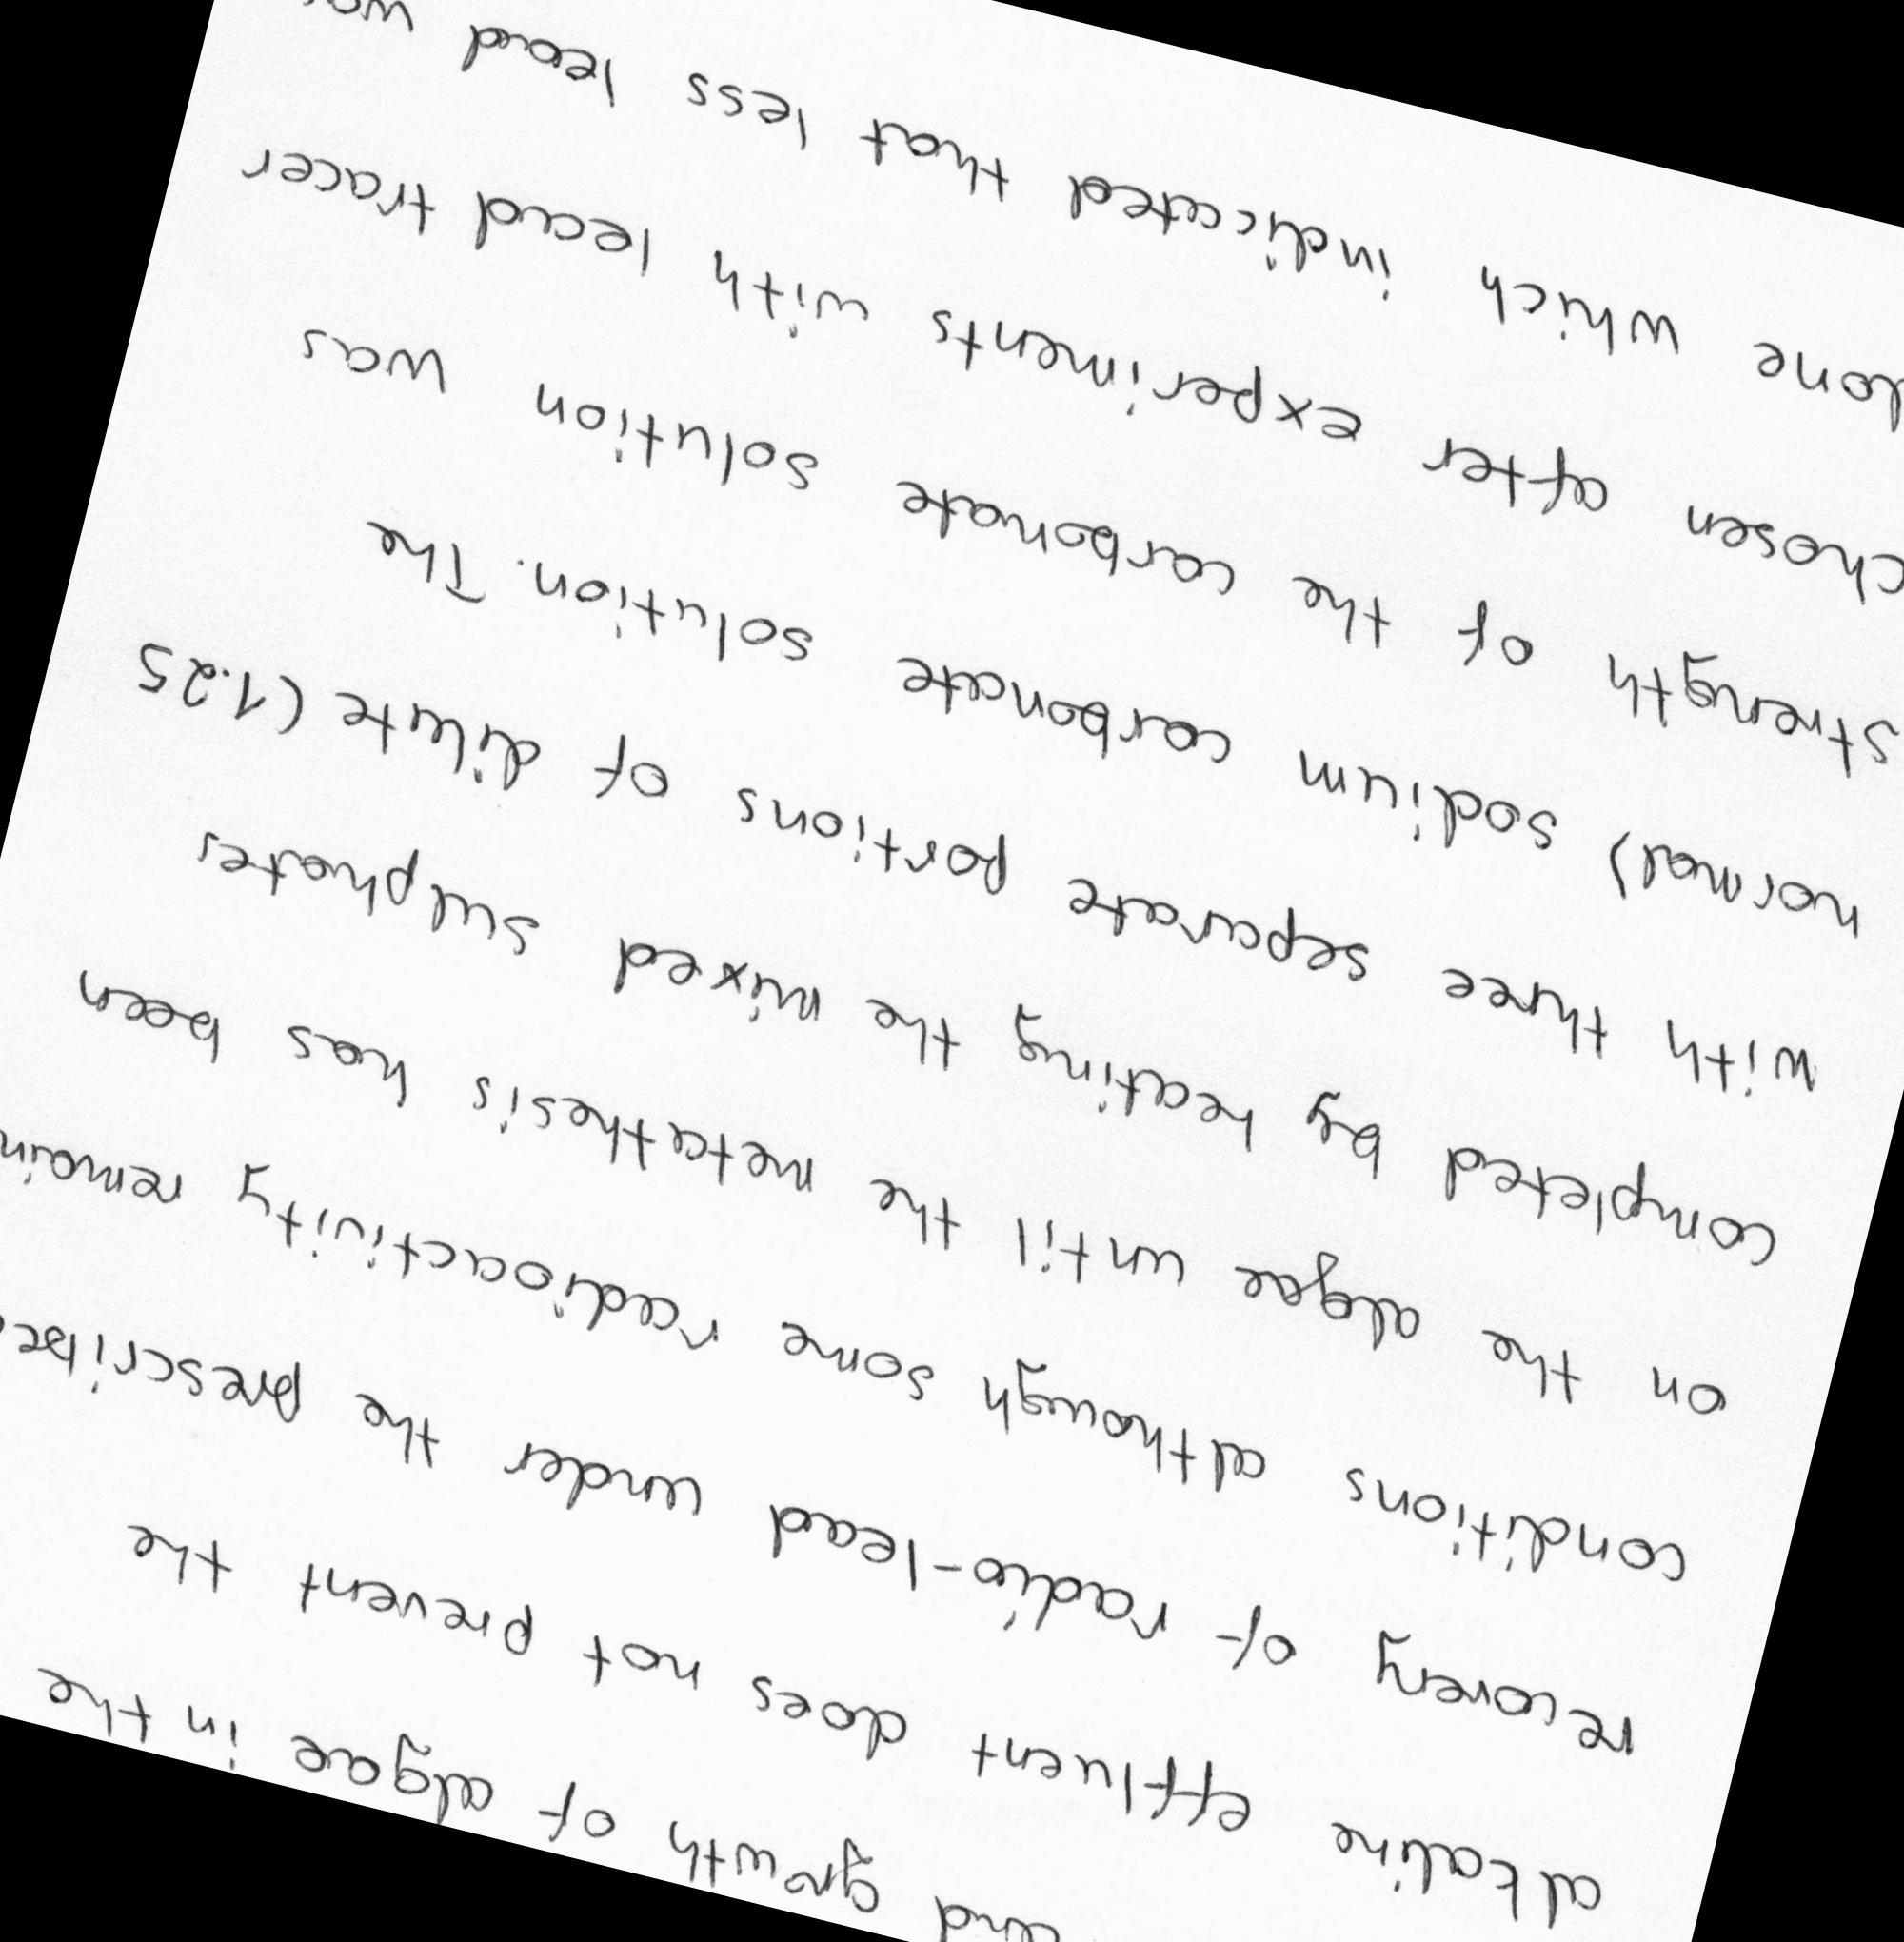 and growth of algae in the
alkaline effluent does not prevent the
recovery of radio-lead under the prescribed
conditions although some radioactivity remain
on the algae until the metathesis has been
completed by heating the mixed sulphates
with three separate portions of dilute (1.25
normal) sodium carbonate solution. The
strength of the carbonate solution was
chosen after experiments with lead tracer
done which indicated that less lead was